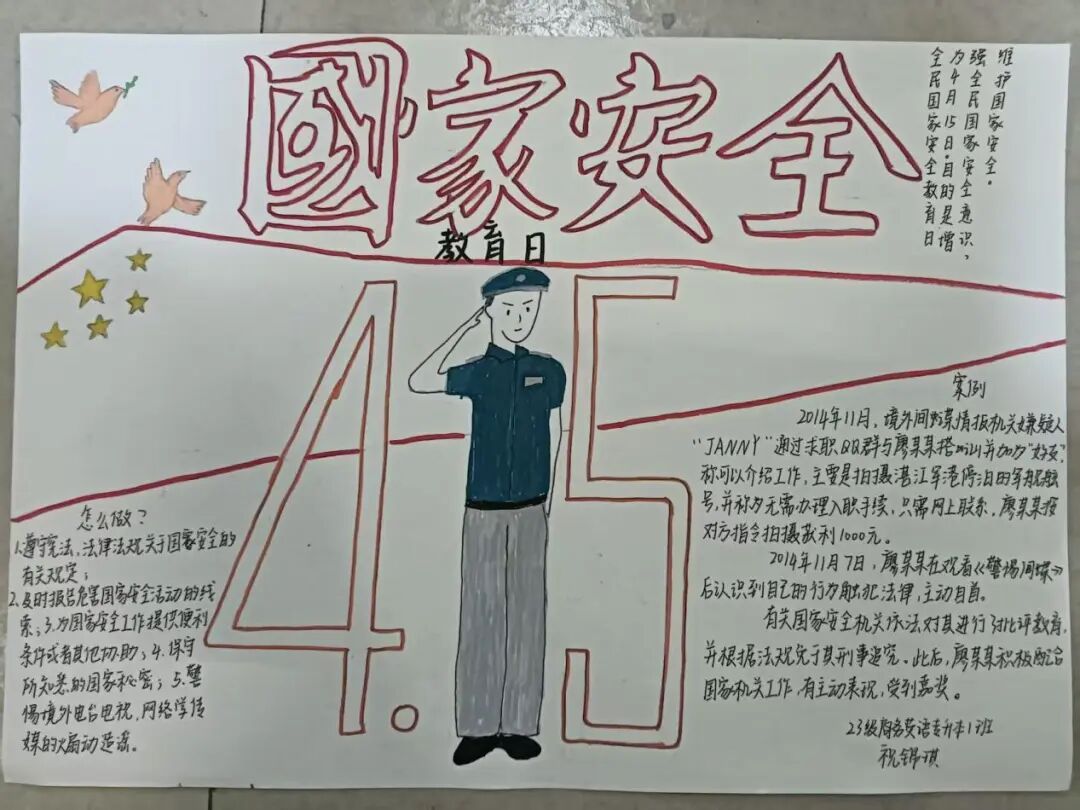 國家安全
教育日
维护国家安全。
强全民国家安全意识，
为4月15日。目的是增
全民国家安全教育日
4.5
案例
2014年11月，境外间谍情报机关嫌疑人
"JANNY"通过求职QQ群与廖某某搭讪并加为"好友"，
称可以介绍工作，主要是拍摄湛江军港停泊的军舰舷
号，并称为无需办理入职手续，只需网上联系，廖某某按
对方指令拍摄获利1000元。
2014年11月7日，廖某某在观看《警惕间谍》
后认识到自己的行为触犯法律，主动自首。
有关国家安全机关依法对其进行了批评教育，
并根据法规免于其刑事追究。此后，廖某某积极配合
国家机关工作，有主动表现，受到嘉奖。
23级商务英语专升本1班
祝锦琪
怎么做？
1.遵守宪法，法律法规关于国家安全的
有关规定；
2.及时报告危害国家安全活动的线
索；3.为国家安全工作提供便利
条件或者其他协助；4.保守
所知悉的国家秘密；5.警
惕境外电台电视，网络学传
媒的煽动造谣。